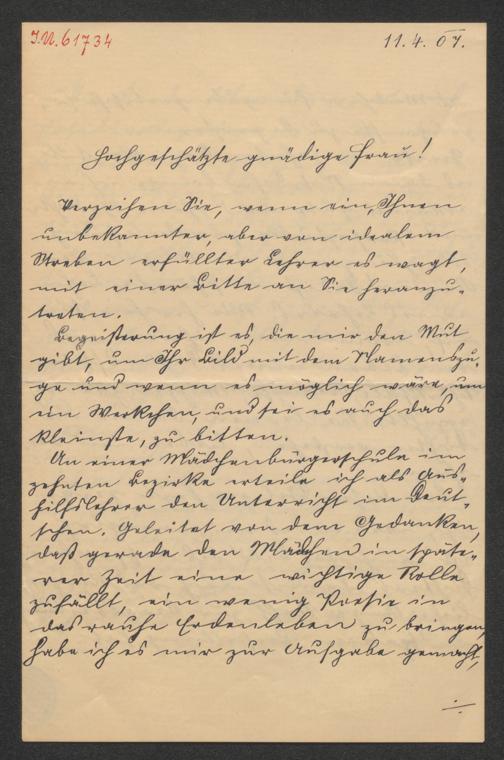 I.N. 61734
11. 4. 07.
Hochgeschätzte gnädige Frau!
Verzeihen Sie, wenn ein, Ihnen
unbekannter, aber von idealem
Streben erfüllter Lehrer es wagt,
mit einer Bitte an Sie heranzu-
treten.
Begeisterung ist es, die mir den Mut
gibt, um Ihr Bild mit dem Namenszu-
ge und wenn es möglich wäre, um
ein Werkchen, und sei es auch das
kleinste, zu bitten.
An einer Mädchenbürgerschule im
zehnten Bezirke erteile ich als Aus-
hilfslehrer den Unterricht im Deut-
schen. Geleitet von dem Gedanken,
daß gerade den Mädchen in späte-
rer Zeit eine wichtige Rolle
zufällt, ein wenig Poesie in
das rauhe Erdenleben zu bringen,
habe ich es mir zur Aufgabe gemacht,